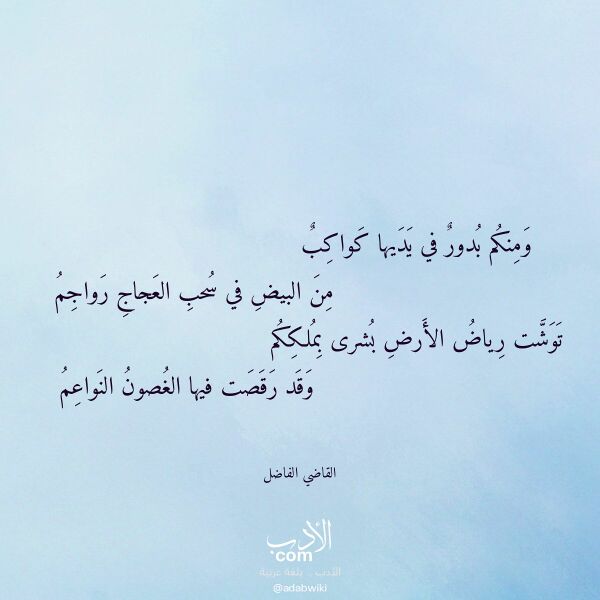 وَمِنكُم بُدورٌ في يَدَيها كَواكِبٌ
مِنَ البيضِ في سُحبِ العَجاجِ رَواجِمُ
تَوَشَّت رِياضُ الأَرضِ بُشرى بِمُلكِكُم
وَقَد رَقَصَت فيها الغُصونُ النَواعِمُ
القاضي الفاضل
الأدب
com
الأدب .. بلغة عربية
@adabwiki